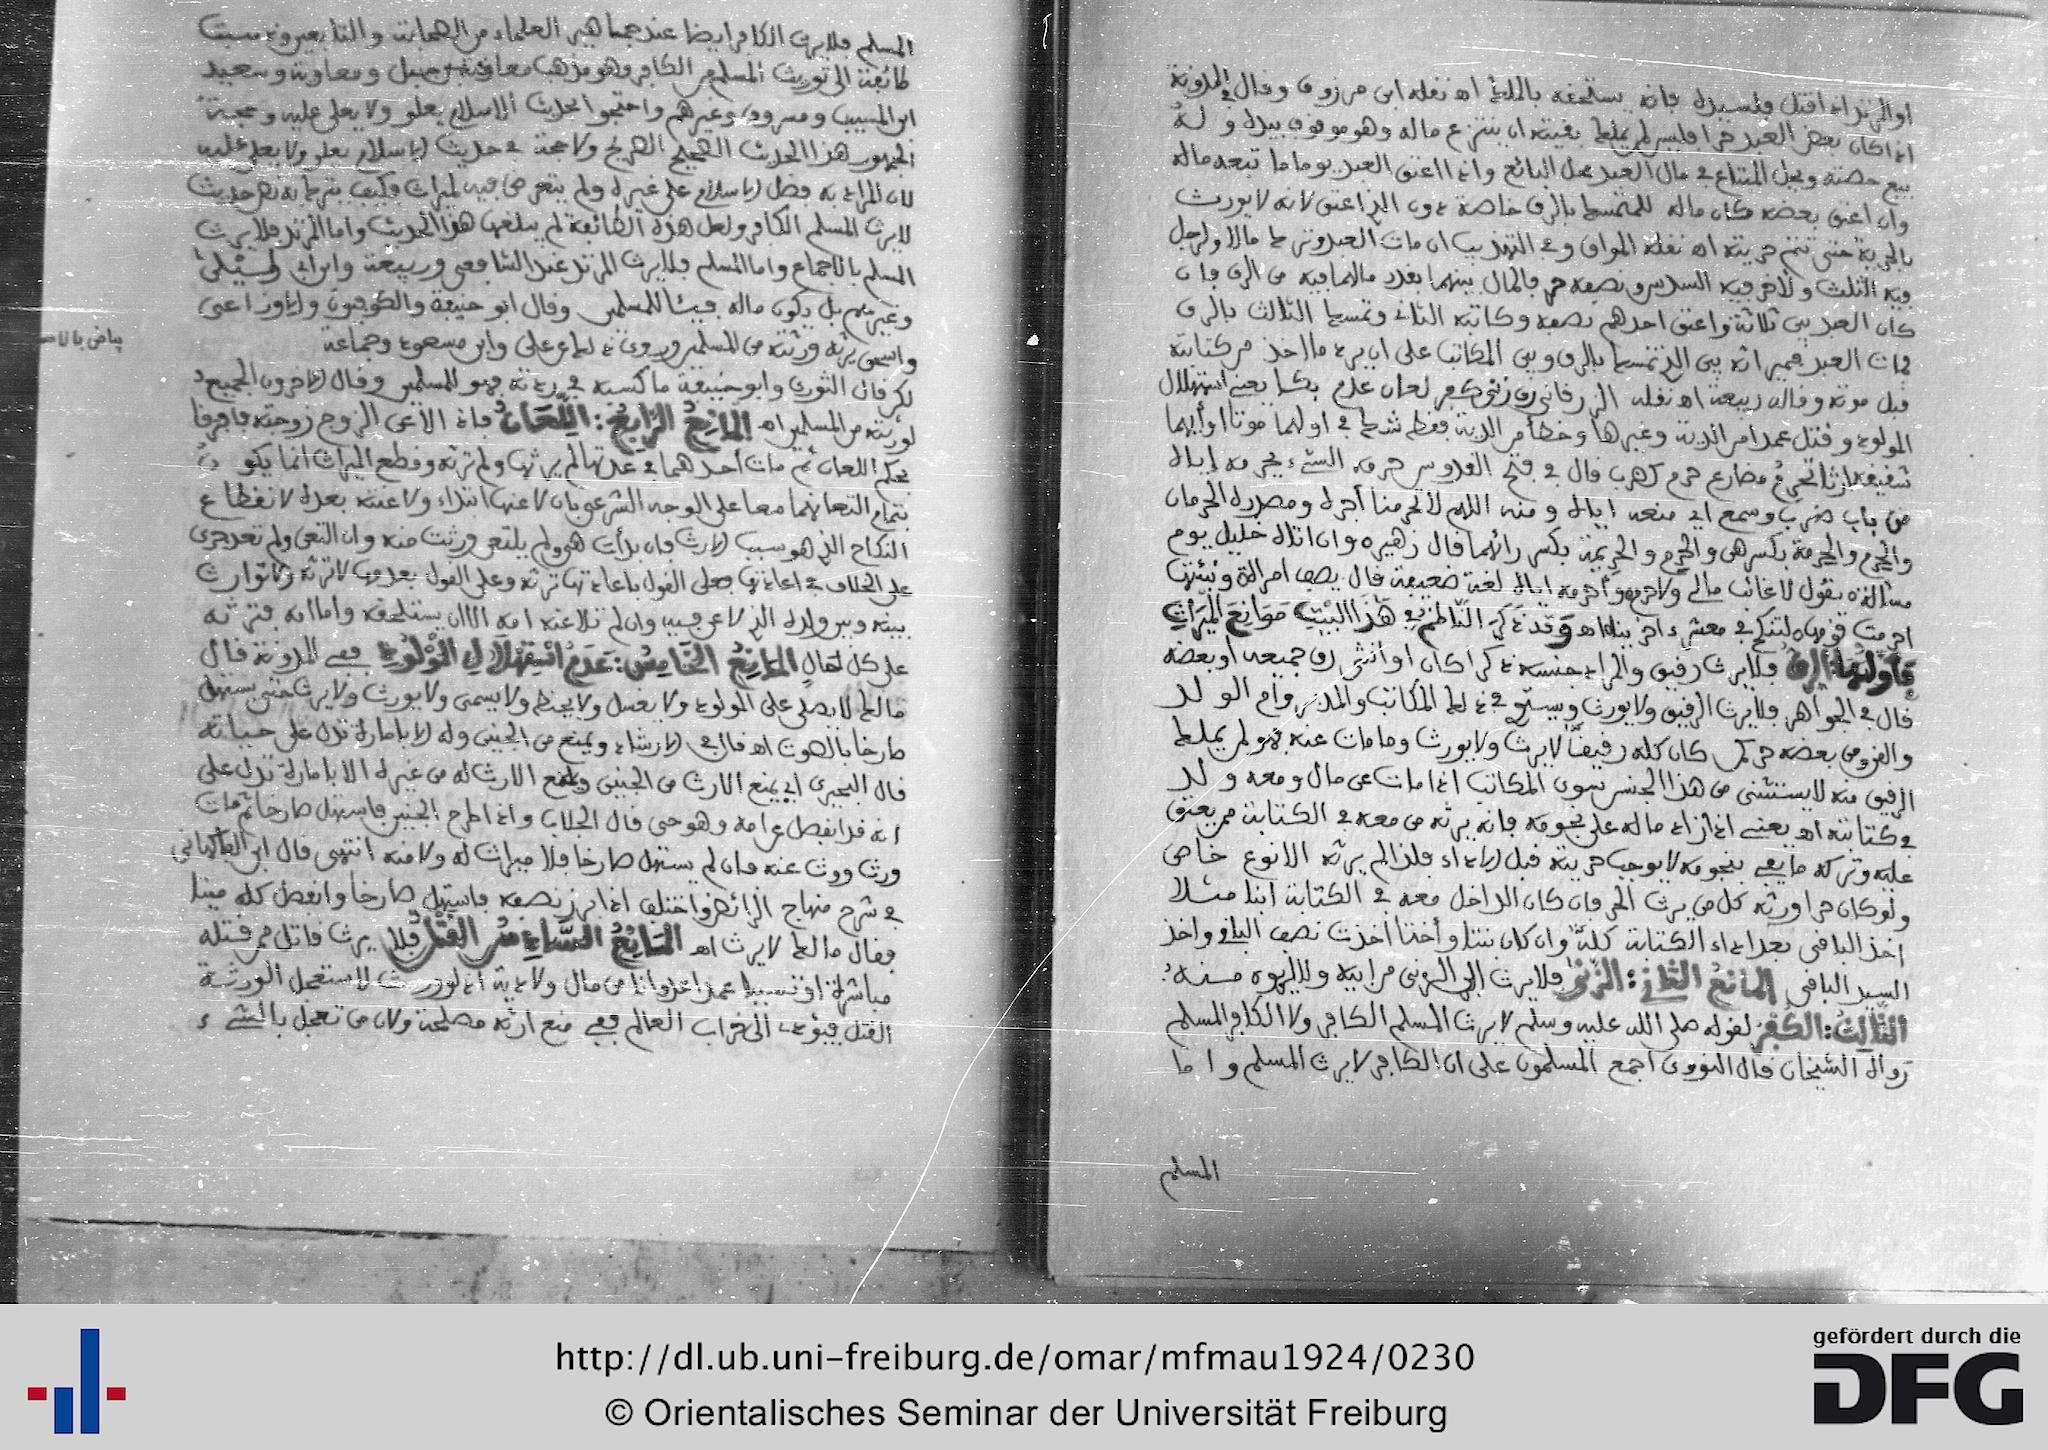 او المرتد اذا قتل
اذا كان بعض العبد حرا فليس لمن يملك بقيته ان ينتزع ماله وهو موقوف بيده وله
بيع حصته ويحل المبتاع في مال العبد محل البائع واذا اعتق العبد يوما ما تبعه ماله
وان اعتق بعضه فكان ماله للمتمسك بالرق خاصة دون الذي اعتق لانه لا يورث
بالحرية حتى تتم حريته اه نقله المواق وفي التهذيب ان مات العبد وترك مالا ولرجل
فيه الثلث ولآخر فيه السدس ونصفه حر فالمال بينهما بقدر مالهما فيه من الرق فان
كان العبد بين ثلاثة واعتق احدهم نصفه وكاتبه الثاني وتمسك الثالث بالرق
فمات العبد فميراثه بين الذي تمسك بالرق وبين المكاتب على ان يرد ما اخذ من كتابته
قبل موته وقاله ربيعة اه نقله الزرقاني
المولود وقتل عمد
من باب ضرب وسمع اي منعه اياه ومنه اللهم لا تحرمنا أجره ومصدره الحرمان
والحرم والحرمة بكسرهن والحرم والحريمة بكسر رائهما قال زهير وان اتاه خليل يوم
مسألة يقول لا غائب مالي ولا حرم وأحرمه اياه لغة ضعيفة قال يصف امرأة
وقد ذكر الناظم في هذا البيت موانع الميراث
فأولها: الرق فلا يرث رقيق والمراد جنسه ذكرا كان او انثى رق جميعه او بعضه
قال في الجواهر فلا يرث الرقيق ولا يورث ويستوي في ذلك المكاتب والمدبر وام الولد
والقن ومن بعضه حر كمن كان كله رقيقا لا يرث ولا يورث وما مات عنه فهو لمن يملك
الرقيق منه لا يستثنى من هذا الجنس سوى المكاتب اذا مات عن مال ومعه ولد
في كتابته اه يعني اذا زاد ماله على نجومه فانه يرثه من معه في الكتابة ممن يعتق
عليه وتركه ما يفي بنجومه لا يوجب حريته قبل الاداء فلذا لم يرثه الا نوع خاص
ولو كان حرا ورثه كل من يرث الحر فان كان الداخل معه في الكتابة ابنا مثلا
اخذ الباقي بعد اداء الكتابة كله وان كان بنتا وأختا اخذت نصف الباقي واخذ
السيد الباقي المانع الثاني: الزنى فلا يرث
الثالث: الكفر لقوله صلى الله عليه وسلم لا يرث المسلم الكافر ولا الكافر المسلم
رواه الشيخان قال النووي اجمع المسلمون على ان الكافر لا يرث المسلم واما
المسلم
المسلم فلا يرث الكافر ايضا عند جماهير العلماء من الصحابة والتابعين وذهبت
طائفة الى توريث المسلم من الكافر وهو مذهب معاذ بن جبل ومعاوية وسعيد
ابن المسيب ومسروق وغيرهم واحتجوا بحديث الاسلام يعلو ولا يعلى عليه وحجة
الجمهور هذا الحديث الصحيح الصريح ولا حجة في حديث الاسلام يعلو ولا يعلى عليه
لان المراد به فضل الاسلام على غيره ولم يتعرض فيه لميراث فكيف يترك به نص حديث
لا يرث المسلم الكافر ولعل هذه الطائفة لم يبلغها هذا الحديث واما المرتد فلا يرث
المسلم بالاجماع واما المسلم فلا يرث المرتد عند الشافعي وربيعة وابن ابي ليلى
وغيرهم بل يكون ماله فيئا للمسلمين وقال ابو حنيفة والكوفيون والاوزاعي
واسحق يرثه ورثته من المسلمين وروي ذلك عن علي وابن مسعود وجماعة
بياض بالاصل
لكن قال الثوري وابو حنيفة ما كسبه في ردته فهو للمسلمين وقال الآخرون الجميع
لورثته من المسلمين اه المانع الرابع: اللعان فاذا لاعن الزوج زوجته فافترقا
بحكم اللعان ثم مات أحدهما في عدتها لم يرثها ولم ترثه وقطع الميراث انما يكون
بتمام التعانهما معا على الوجه الشرعي بان لاعنها ابتداء ولاعنته بعده لانقطاع
النكاح الذي هو سبب الارث فان بدأت هي ولم يلتعن ورثت منه وان التعن ولم تعد جرى
على الخلاف في اعادتها فعلى القول باعادتها ترثه وعلى القول بعدمها لا ترثه ولا توارث
بينه وبين ولده الذي لاعن فيه وان لم تلاعنه امه الا ان يستلحقه واما امه فترثه
على كل حال المانع الخامس: عدم استهلال المولود ففي المدونة قال
مالك لا يصلى على المولود ولا يغسل ولا يحنط ولا يسمى ولا يورث ولا يرث حتى يستهل
صارخا بالصوت اه قال في الارشاد ويمنع من الجنين وله الا بامارة تدل على حياته
قال البحيري اي يمنع الارث من الجنين ويمنع الارث له من غيره الا بامارة تدل على
انه قد انفصل عن امه وهو حي قال الجلاب واذا طرح الجنين فاستهل صارخا ثم مات
ورث وورث عنه فان لم يستهل صارخا فلا ميراث له ولا منه انتهى قال ابن الفاكهاني
في شرح منهاج الرائض واختلف اذا برز نصفه فاستهل صارخا وانفصل كله ميتا
فقال مالك لا يرث اه المانع السادس القتل فلا يرث قاتل ممن قتله
مباشرة او تسببا عمدا عدوانا من مال ولا دية اذ لو ورث لاستعجل الورثة
القتل فيؤدي الى خراب العالم ففي منع ارثه مصلحة ولان من تعجل بالشيء
http://dl.ub.uni-freiburg.de/omar/mfmau1924/0230
© Orientalisches Seminar der Universität Freiburg
gefördert durch die
DFG